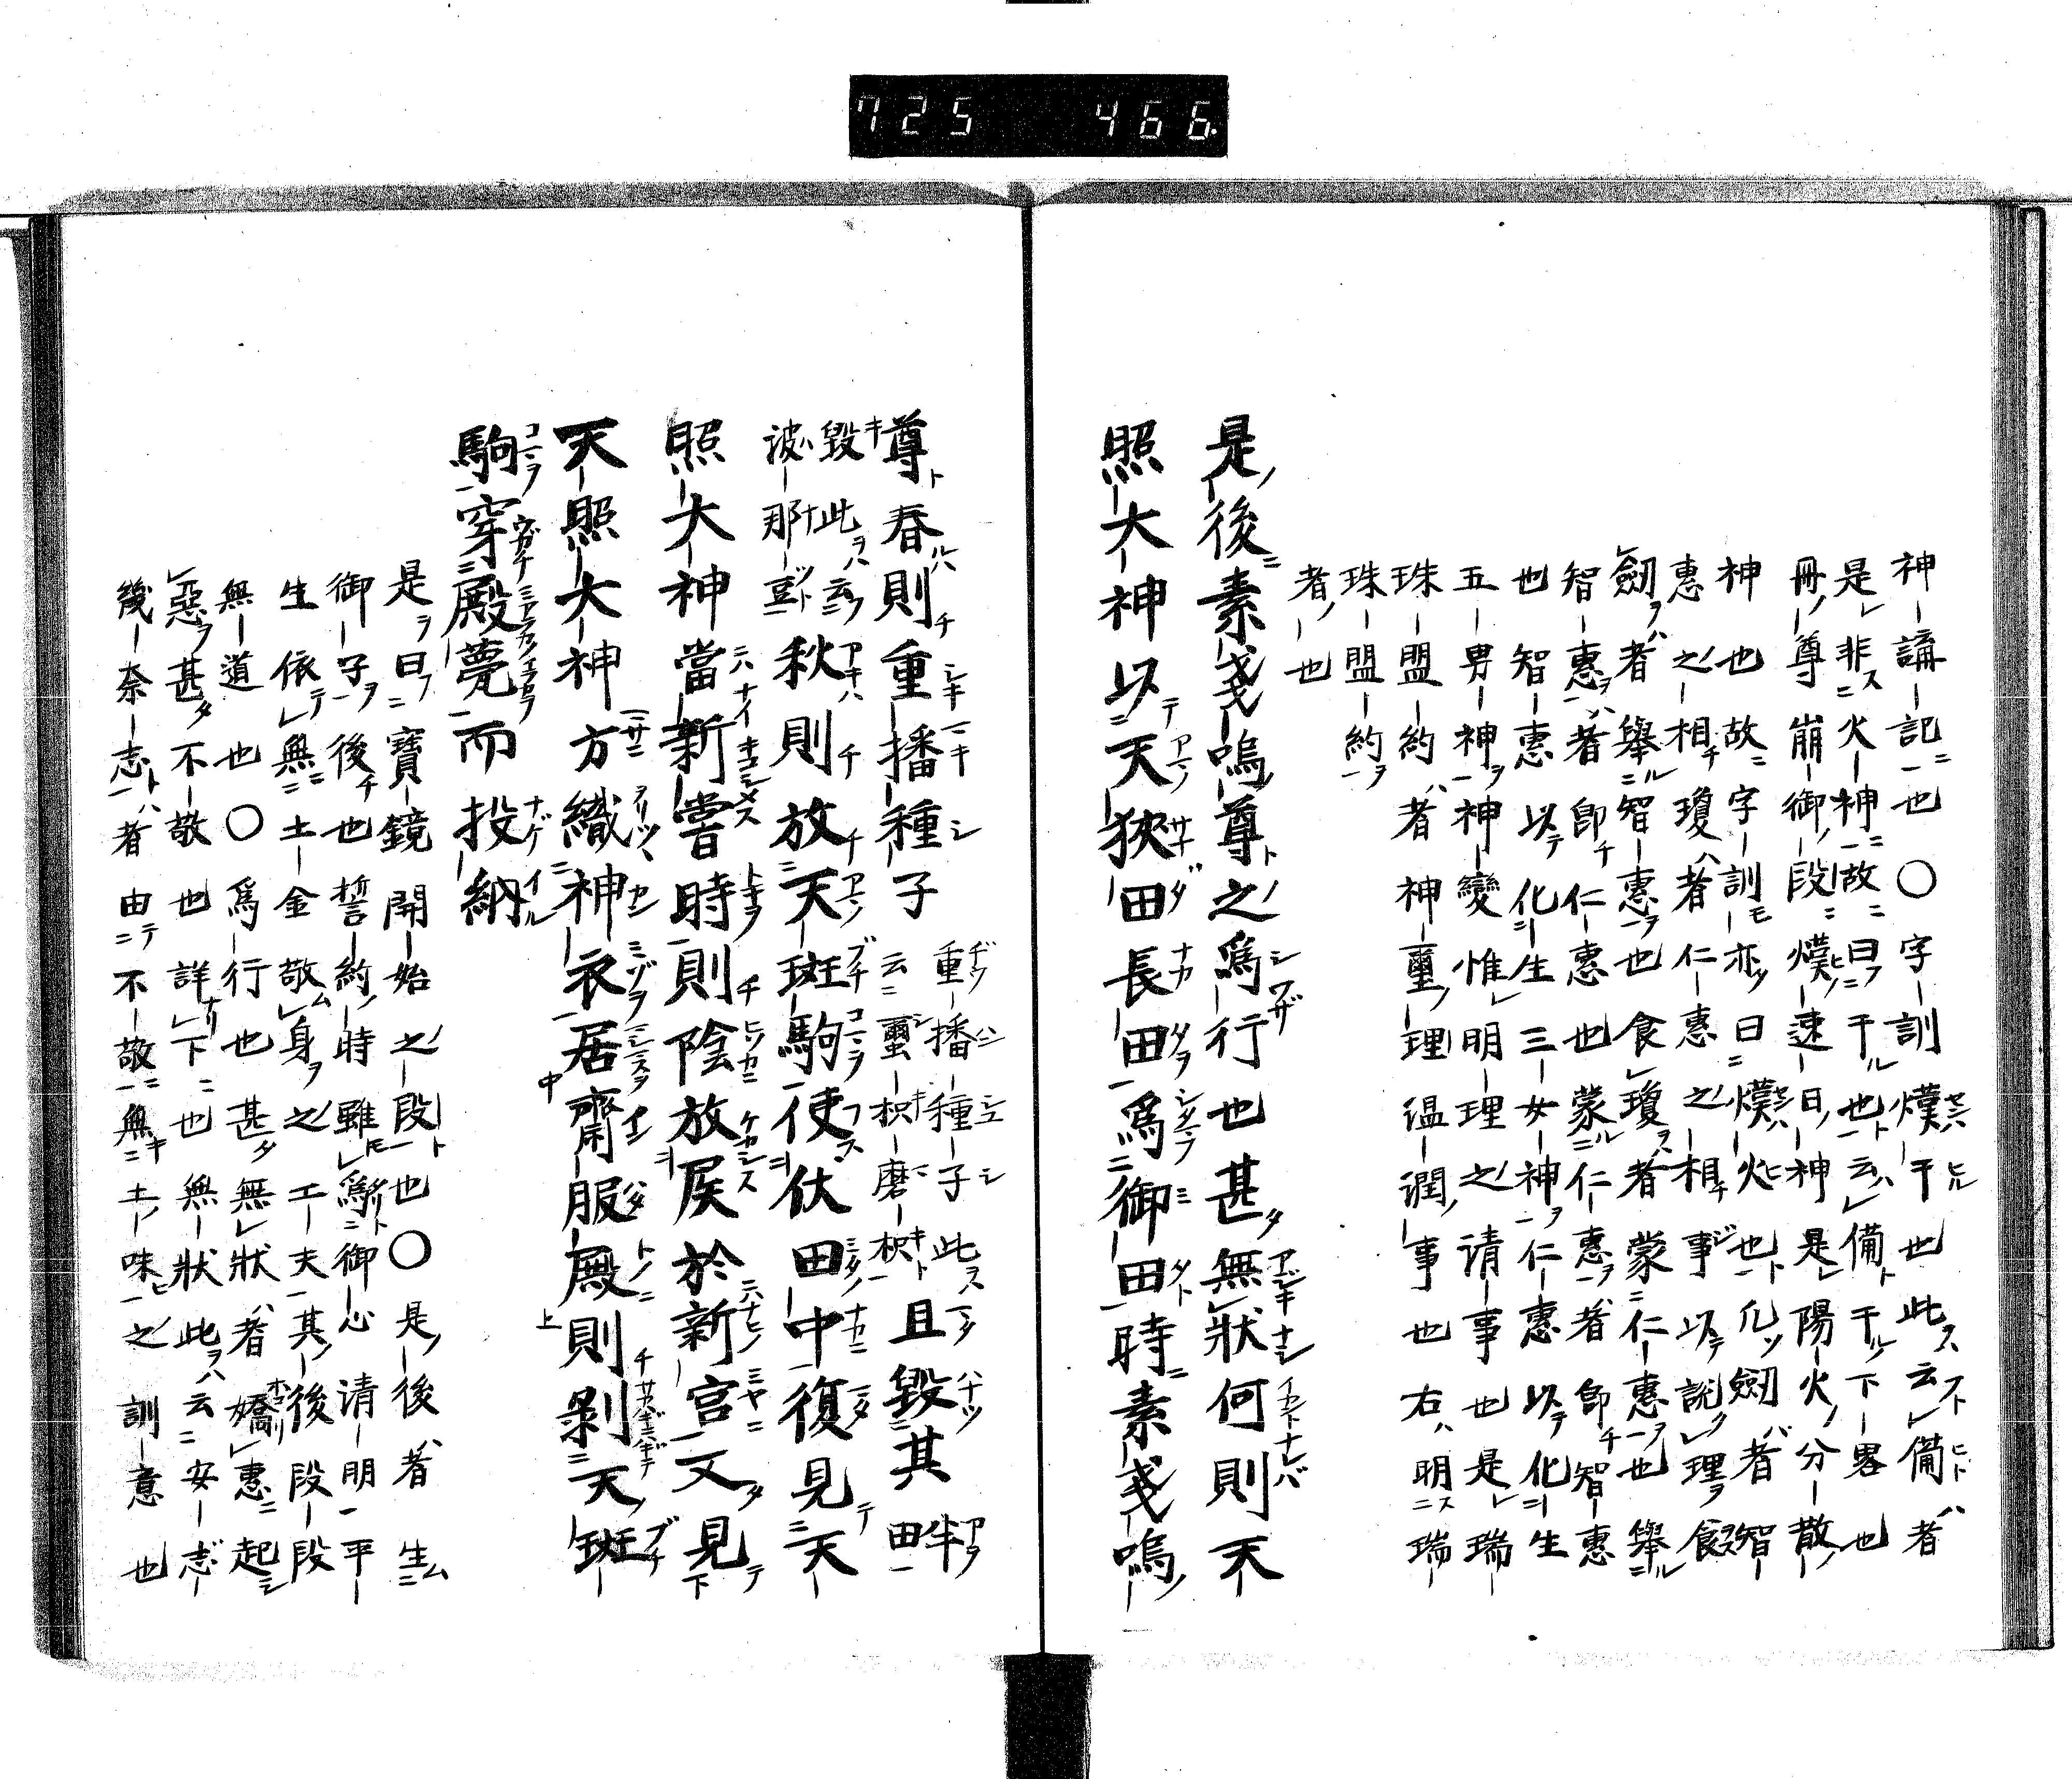 725 466
神講記也〇字訓熯干也此云備者
是非火神故曰干也云備干下畧也
冊尊崩御段熯速日神是陽火分散
神也故字訓亦曰熯火也凡劔者智
惠之相瓊者仁惠之相事以說理食
劔者舉智惠也食瓊者蒙仁惠也舉
智惠者即仁惠也蒙仁惠者即智惠
也智惠以化生三女神仁惠以化生
五男神神變惟明理之请事也是瑞
珠盟約者神璽理温潤事也右明瑞
珠盟約
者也
是後素戔嗚尊之爲行也甚無狀何則天
照大神以天狹田長田爲御田時素戔嗚
尊春則重播種子
重播種子此
云璽枳磨枳
且毀其畔
毀此云
波那豆
秋則放天斑駒使伏田中復見天
照大神當新嘗時則陰放㞋於新宮又見
天照大神方織神衣居齋服殿則剝天斑
駒穿殿甍而投納
是曰寶鏡開始之段也〇是後者生
御子後也誓約時雖爲御心请明平
生依無土金敬身之工夫其後段段
無道也〇爲行也甚無狀者嬌惠起
惡甚不敬也詳下也無狀此云安志
幾奈志者由不敬無土味之訓意也